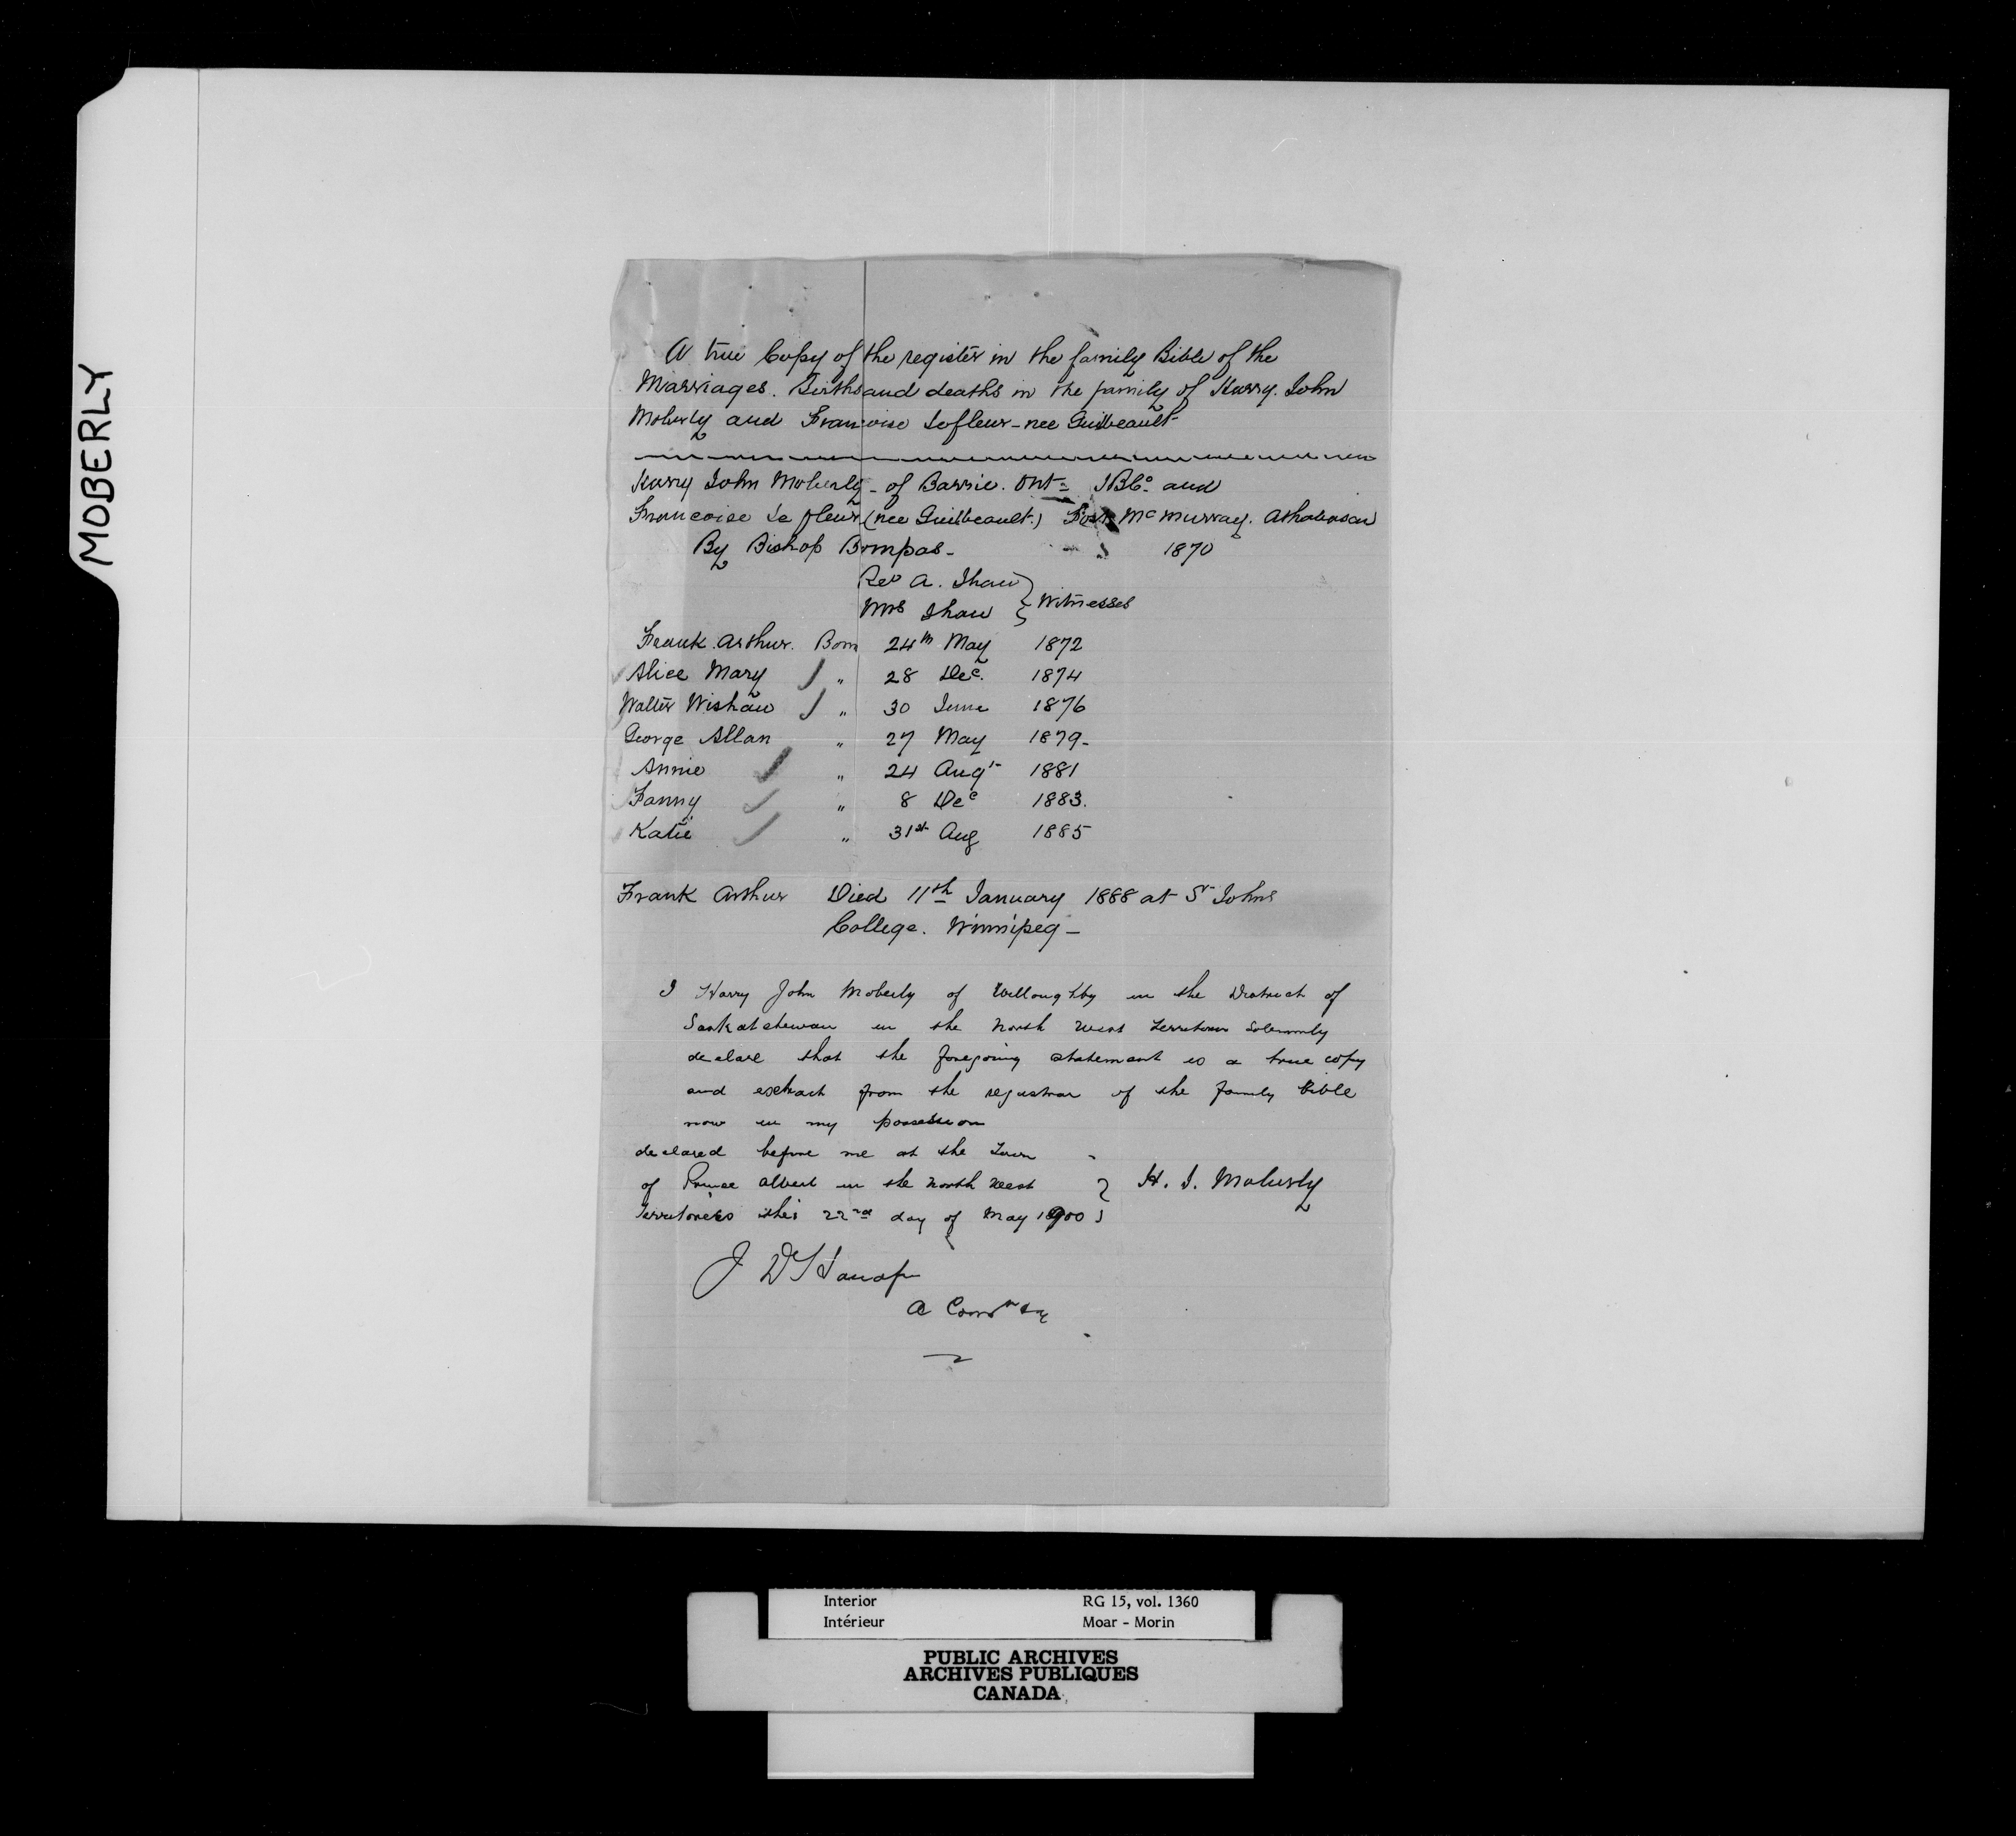 MOBERLY
A true Copy of the register in the family Bible of the
Marriages. Births and deaths in the family of Harry. John
Moberly and Francoise Lefleur - nee Guilbeault
Harry John Moberly - of Barrie. Ont = HBCo. and
Francoise Le fleur (nee Guilbeault.) Fort McMurray. Athabasca
By Bishop Bompas - 1870
Revd A. Shaw
Mrs Shaw } Witnesses
Frank. Arthur. Born 24th May 1872
Alice Mary " 28 Dec. 1874
Walter Wishaw " 30 June 1876
George Allan " 27 May 1879 -
Annie " 24 Augt 1881
Fanny " 8 Dec 1883.
Katie " 31st Aug 1885
Frank Arthur Died 11th January 1888 at St Johns
College. Winnipeg -
I Harry John Moberly of Willoughby in the District of
Saskatchewan in the North West Territories Solemnly
declare that the foregoing statement is a true copy
and extract from the registrar of the family Bible
now in my possession
declared before me at the Town
of Prince Albert in the North West } H. J. Moberly
Territories this 22nd day of May 1900
J D
A Comr
Interior RG 15, vol. 1360
Intérieur Moar - Morin
PUBLIC ARCHIVES
ARCHIVES PUBLIQUES
CANADA